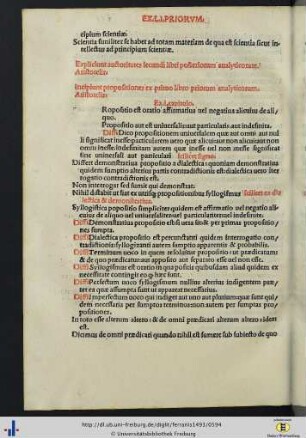 EX.LI.PRIORVM.
cipium scientiae.
Scientia similiter se habet ad totam materiam de qua est scientia sicut in-
tellectus ad principium scientiae.
Expliciunt auctoritates secundi libri posteriorum analyticorum.
Aristotelis.
Incipiunt propositiones ex primo libro priorum analyticorum.
Aristotelis.
Ex.i.capitulo.
Ropositio est oratio affirmatiua uel negatiua alicuius de ali-
quo.
Propositio aut est uniuersalis aut particularis aut indefinita.
Diffi Dico propositionem uniuersalem quae aut omni aut nul
li significat inesse particularem uero quae alicui aut non alicui aut non
omni inesse indefinitam autem quae inesse uel non inesse significat
sine uniuersali aut particulari
Differt demonstratiua propositio a dialectica: quoniam demonstratiua
quidem sumptio alterius partis contradictionis est dialectica uero inter
rogatio contradictionis est.
Non interrogat sed sumit qui demonstrat.
Nihil differt ut fiat ex utrisque propositionibus syllogismus
Syllogistica propositio simpliciter quidem est affirmatio uel negatio ali
cuius de aliquo uel uniuersaliter uel particulariter uel indefinite.
Diffi Demonstratiua propositio est si uera sit & per primas propositio
nes sumpta.
Diffi Dialectica propositio est percunctanti quidem interrogatio con-
tradictionis syllogizanti autem sumptio apparentis & probabilis.
Diffi Terminum uoco in quem resoluitur propositio: ut praedicatum
& de quo praedicatur apposito aut separato esse uel non esse.
Diffi Syllogismus est oratio in qua positis quibusdam aliud quidem ex
necessitate contingit ex his quae sunt.
Diffi Perfectum uoco syllogismum nullius alterius indigentem prae-
ter ea quae assumpta sunt ut appareat necessarius.
Diffi Imperfectum uoco qui indiget aut unius aut plurimorum quae sunt qui-
dem necessaria per sumptos terminos non autem per sumptas pro-
positiones.
In toto esse alterum altero: & de omni praedicari alterum altero: idem
est.
Dicimus de omni praedicari quando nihil est sumere sub subiecto de quo
http://dl.ub.uni-freiburg.de/diglit/ferrariis1493/0594
© Universitätsbibliothek Freiburg